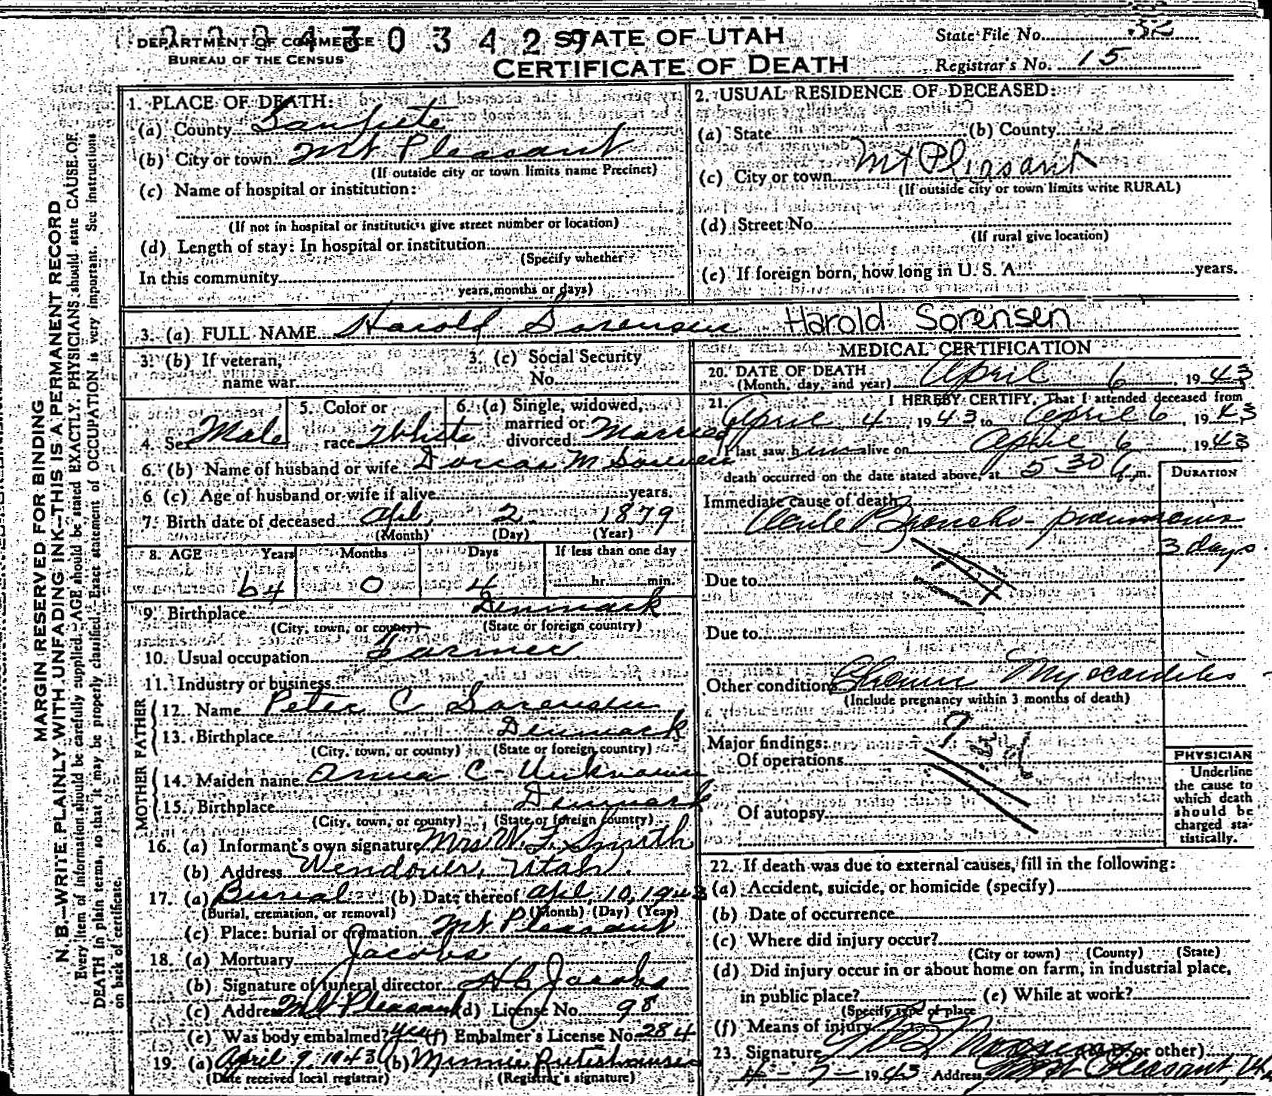 DEPARTMENT OF COMMERCE
BUREAU OF THE CENSUS
4 3 0 3 4 2 9
STATE OF UTAH
CERTIFICATE OF DEATH
State File No. 52
Registrar's No. 15
MARGIN RESERVED FOR BINDING
N. B.—WRITE PLAINLY WITH UNFADING INK—THIS IS A PERMANENT RECORD
Every item of Information should be carefully supplied. AGE should be stated EXACTLY. PHYSICIANS should state CAUSE OF
DEATH in plain terms, so that it may be properly classified. Exact statement of OCCUPATION is very important. See instructions
on back of certificate.
1. PLACE OF DEATH:
(a) County Sanpete
(b) City or town Mt Pleasant
(If outside city or town limits name Precinct)
(c) Name of hospital or institution:
(If not in hospital or institution give street number or location)
(d) Length of stay: In hospital or institution
(Specify whether
In this community
years, months or days)
2. USUAL RESIDENCE OF DECEASED:
(a) State (b) County
(c) City or town Mt Pleasant
(If outside city or town limits write RURAL)
(d) Street No.
(If rural give location)
(e) If foreign born, how long in U. S. A. years.
3. (a) FULL NAME Harold Sorensen Harold Sorensen
3. (b) If veteran, name war
3. (c) Social Security No.
4. Sex Male
5. Color or race White
6. (a) Single, widowed, married or divorced Married
6. (b) Name of husband or wife M Sorensen
6 (c) Age of husband or wife if alive years.
7. Birth date of deceased Apl. 2 1879
(Month) (Day) (Year)
8. AGE Years Months Days If less than one day
64 0 4 hr. min.
9. Birthplace Denmark
(City, town, or county) (State or foreign country)
10. Usual occupation Farmer
11. Industry or business
FATHER
12. Name Peter C Sorensen
13. Birthplace Denmark
(City, town, or county) (State or foreign country)
MOTHER
14. Maiden name Anna C Unknown
15. Birthplace Denmark
(City, town, or county) (State or foreign country)
16. (a) Informant's own signature Mrs. W. F. Smith
(b) Address Wendover, Utah.
17. (a) Burial (b) Date thereof Apl. 10, 1943
(Burial, cremation, or removal) (Month) (Day) (Year)
(c) Place: burial or cremation Mt Pleasant
18. (a) Mortuary Jacobs
(b) Signature of funeral director Jacobs
(c) Address Mt Pleasant (d) License No. 98
(e) Was body embalmed? yes (f) Embalmer's License No. 284
19. (a) April 9, 1943 (b) Minnie
(Date received local registrar) (Registrar's signature)
MEDICAL CERTIFICATION
20. DATE OF DEATH
(Month, day, and year) April 6, 1943
21. I HEREBY CERTIFY, That I attended deceased from
April 4 1943 to April 6, 1943
I last saw him alive on April 6, 1943
death occurred on the date stated above, at 5 30 m.
DURATION
Immediate cause of death
Acute Broncho-pneumonia
3 days
Due to
Due to
Other conditions Chronic Myocarditis
(Include pregnancy within 3 months of death)
Major findings:
Of operations
Of autopsy
PHYSICIAN
Underline
the cause to
which death
should be
charged sta-
tistically.
22. If death was due to external causes, fill in the following:
(a) Accident, suicide, or homicide (specify)
(b) Date of occurrence
(c) Where did injury occur?
(City or town) (County) (State)
(d) Did injury occur in or about home on farm, in industrial place,
in public place? (e) While at work?
(Specify type of place
(f) Means of injury
23. Signature (M.D. or other)
4-7-1943 Address Mt Pleasant, Utah